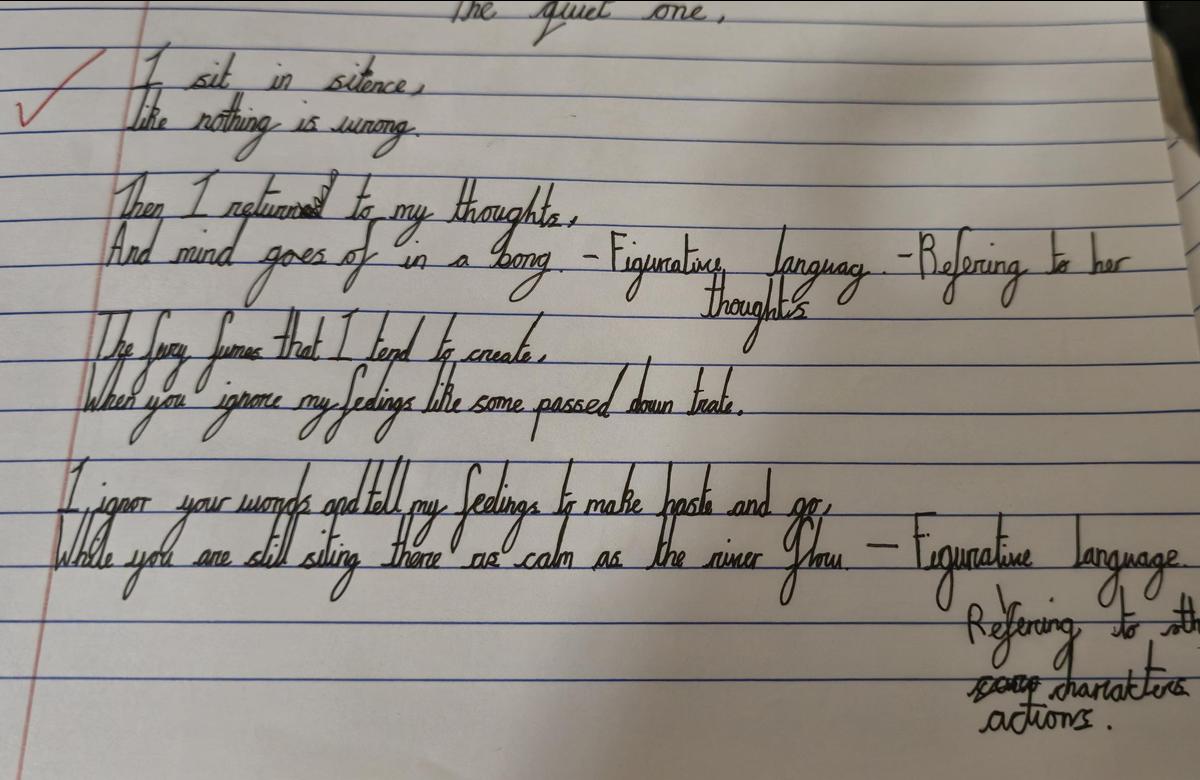 The quiet one,
I sit in silence,
like nothing is wrong.
Then I return to my thoughts,
And mind goes of in a bong. - Figurative languag. - Refering to her
thoughts
The fury fumes that I tend to create,
When you ignore my feelings like some passed down trate.
I ignor your words and tell my feelings to make haste and go,
While you are still siting there as calm as the river flow. - Figurative language.
Refering to
charakters
actions.